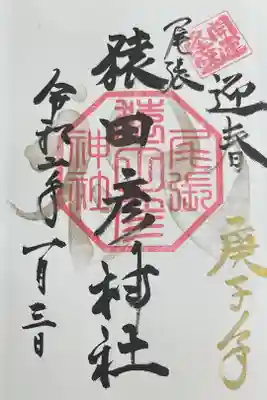 迎春
庚子年
尾張
猿田彦神社
令和二年一月三日
尾張
猿田彦
神社